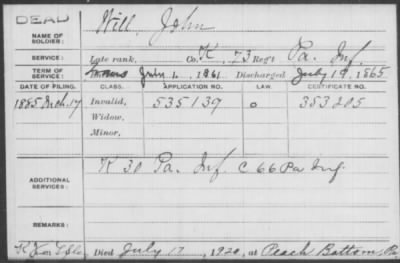 DEAD
NAME OF SOLDIER: Will, John
SERVICE: Late rank, Co. K, 73 Reg't Pa. Inf.
TERM OF SERVICE: July 1, 1861 Discharged July 19, 1865
DATE OF FILING. CLASS. APPLICATION NO. LAW. CERTIFICATE NO.
1885 Mch. 17 Invalid, 535139 o 353205
Widow,
Minor,
ADDITIONAL SERVICES: K 30 Pa. Inf. C 66 Pa Inf.
REMARKS:
Died July 17, 1920, at Peach Bottom, Pa